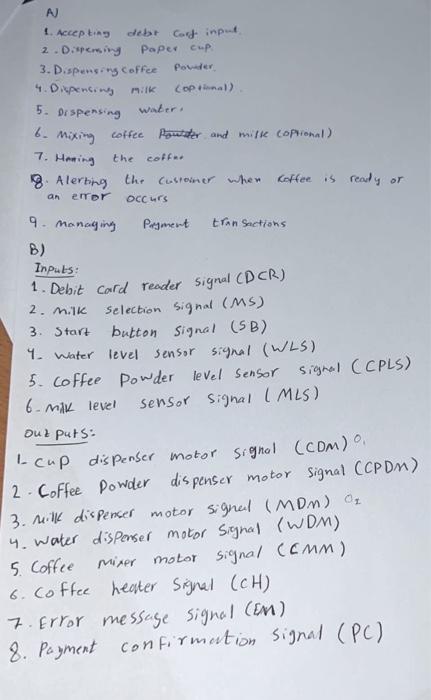 A)
1. Accepting debit card input.
2. Dispensing Paper cup.
3. Dispensing coffee Powder.
4. Dispensing milk (optional).
5. Dispensing water.
6. Mixing coffee Powder and milk (optional)
7. Heating the coffee
8. Alerting the customer when coffee is ready or
an error occurs
9. managing Payment transactions
B)
Inputs:
1. Debit card reader signal (DCR)
2. Milk selection signal (MS)
3. Start button signal (SB)
4. water level sensor signal (WLS)
5. coffee Powder level sensor signal (CPLS)
6. milk level sensor signal (MLS)
Outputs:
1. cup dispenser motor signal (CDM) O1
2. Coffee Powder dispenser motor signal (CPDM)
3. Milk dispenser motor signal (MDM) O2
4. water dispenser motor signal (WDM)
5. Coffee mixer motor signal (CMM)
6. Coffee heater signal (CH)
7. Error message signal (EM)
8. Payment confirmation signal (PC)